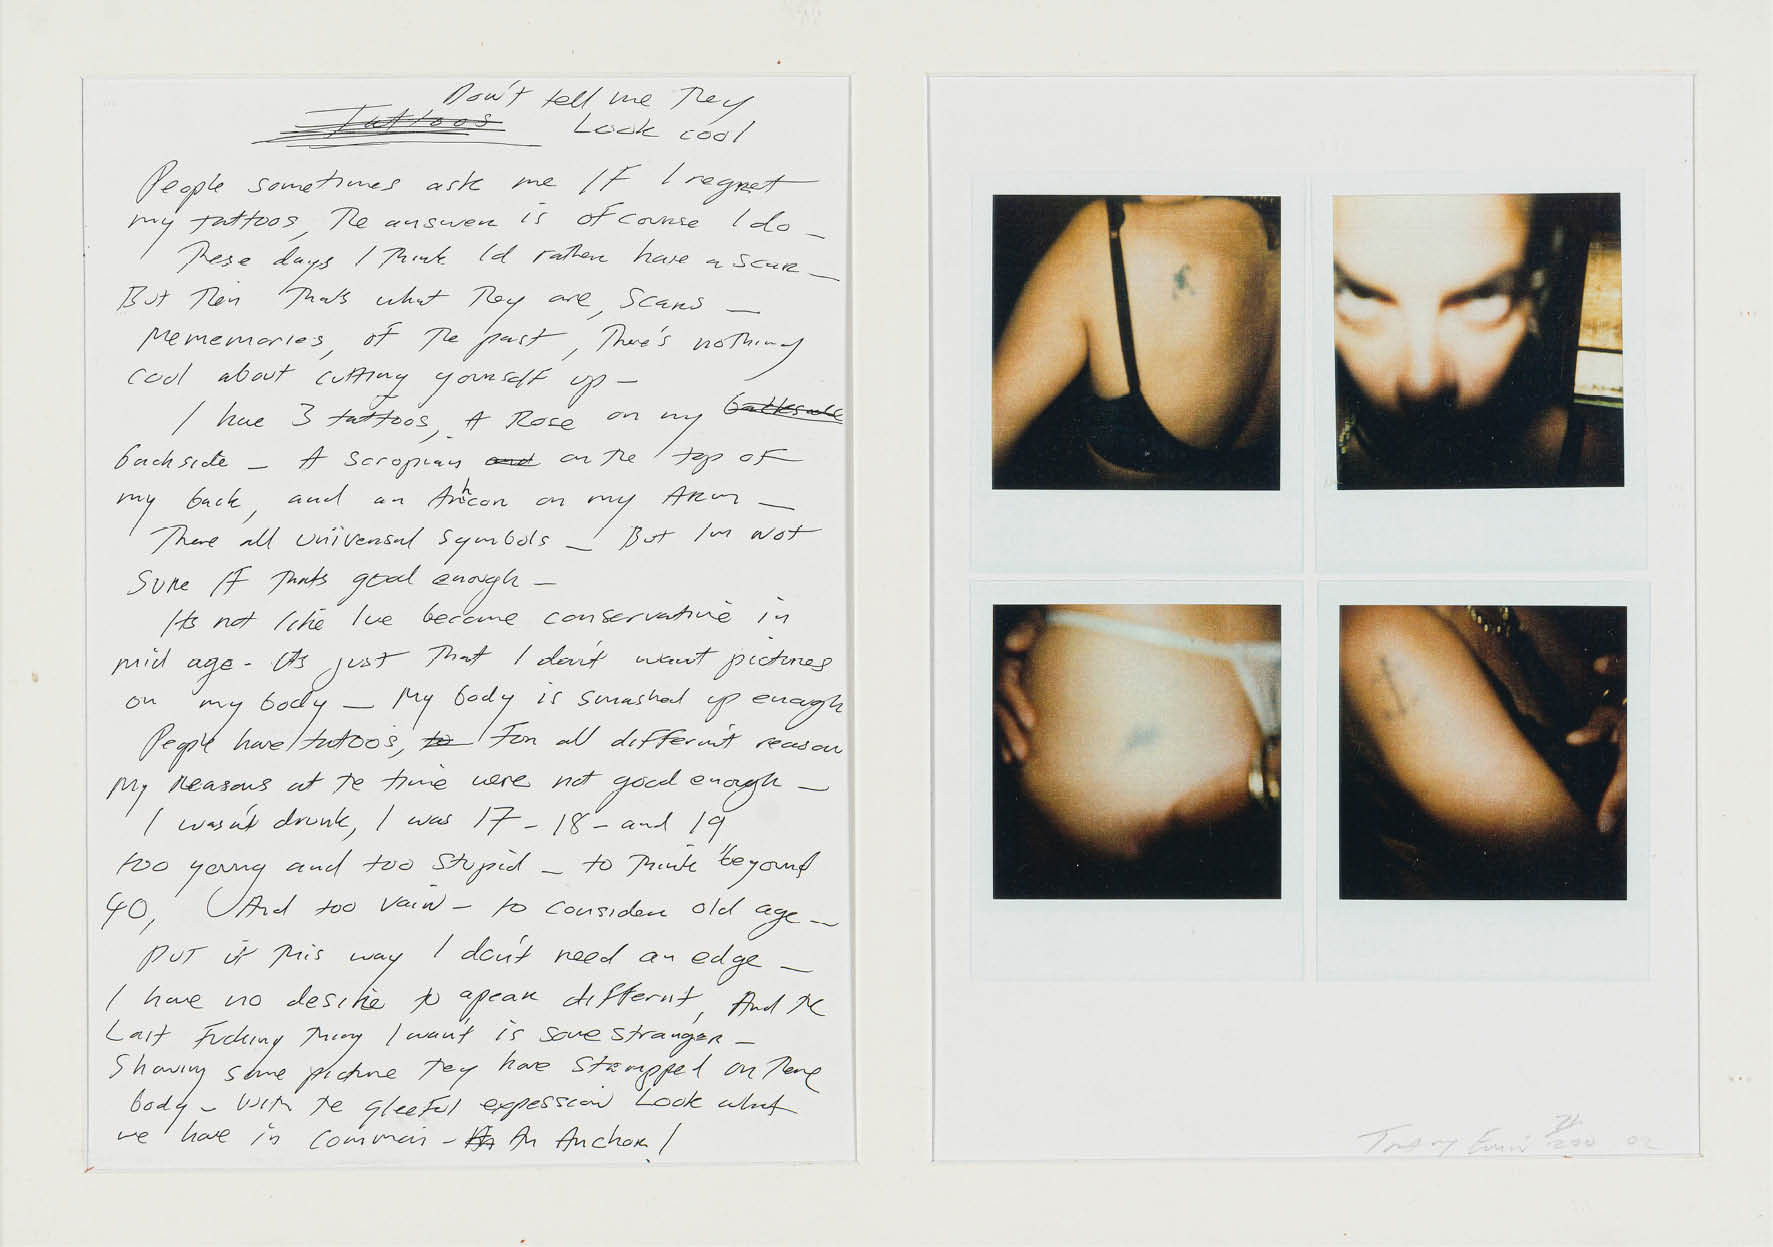 Don't tell me They
Tattoos Look cool
People sometimes ask me IF I regret
my tattoos, The answer is of course I do _
These days I Think I'd rather have a scar _
But Then That's what They are, Scars _
Mememories, of The past, There's nothing
cool about cutting yourself up _
I have 3 tattoos, A Rose on my backside
backside _ A Scropian and on The top of
my back, and an Anhcor on my ARM _
There all universal symbols _ But I'm not
Sure IF Thats good enough _
Its not like I've become conservative in
mid age - It's just That I don't want pictures
on my body _ My body is smashed up enough
People have tattoos, to For all different reason
My Reasons at te time were not good enough _
I wasn't drunk, I was 17 - 18 - and 19
too young and too Stupid _ to Think beyond
40, And too vain - to consider old age _
PUT it This way I don't need an edge _
I have no desire to apear differnt, And The
Last Fucking Thing I want is some stranger _
Showing some picture Tey have Stampped on There
body _ With Te gleeful expession Look what
we have in common - An An Anchor!
Tracey Emin 02